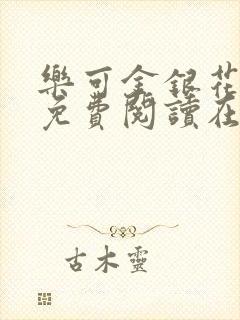 樂可金銀花
免費閱讀在
古木靈